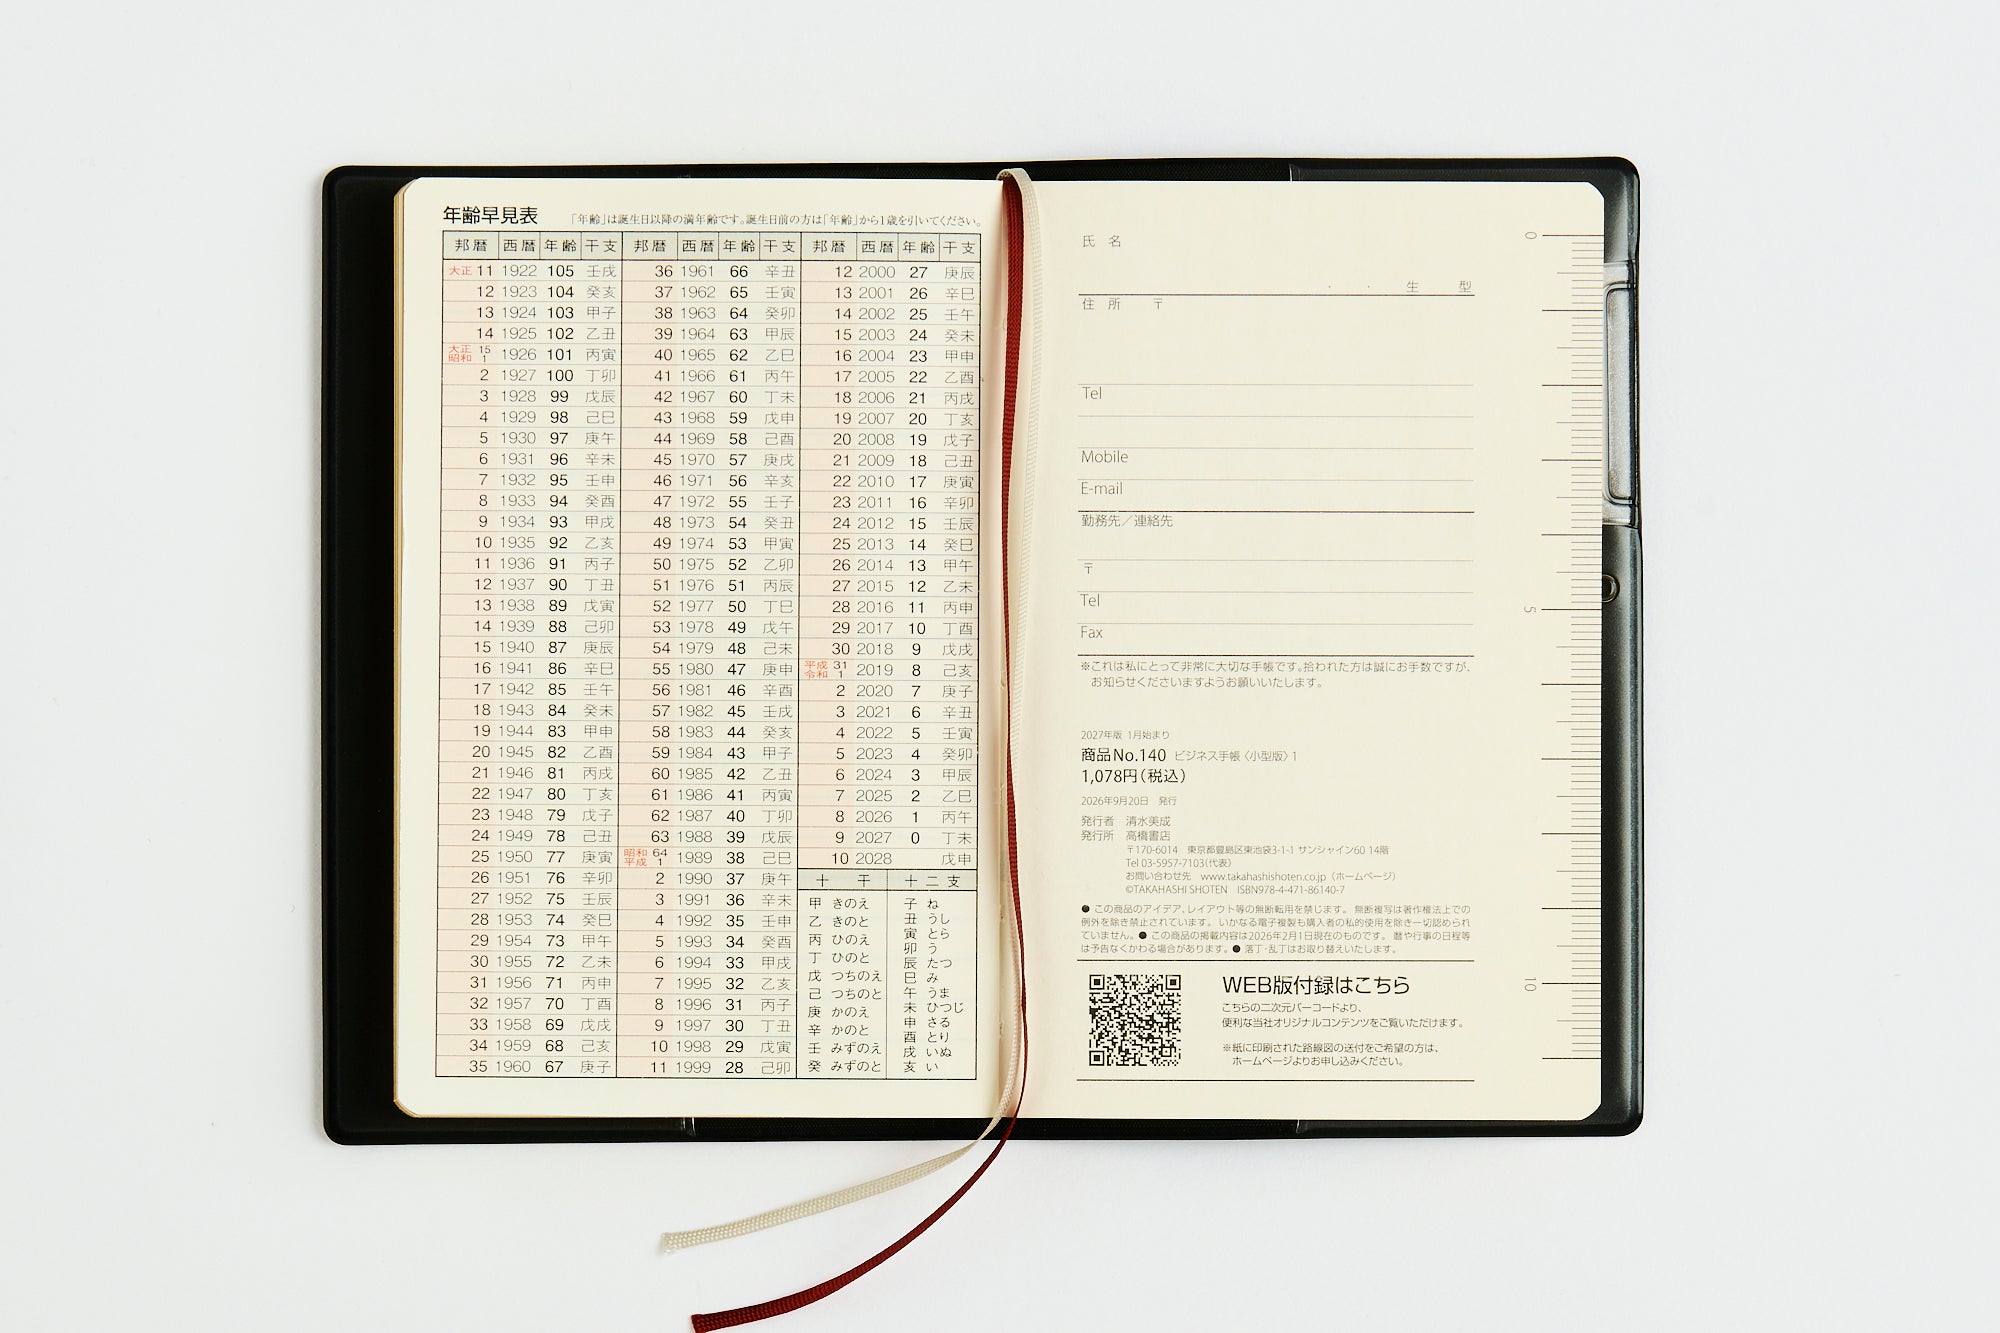 年齢早見表 「年齢」は誕生日以降の満年齢です。誕生日前の方は「年齢」から1歳を引いてください。
邦暦 西暦 年齢 干支 邦暦 西暦 年齢 干支 邦暦 西暦 年齢 干支
大正 11 1922 105 壬戌 36 1961 66 辛丑 12 2000 27 庚辰
12 1923 104 癸亥 37 1962 65 壬寅 13 2001 26 辛巳
13 1924 103 甲子 38 1963 64 癸卯 14 2002 25 壬午
14 1925 102 乙丑 39 1964 63 甲辰 15 2003 24 癸未
大正 15 昭和 1 1926 101 丙寅 40 1965 62 乙巳 16 2004 23 甲申
2 1927 100 丁卯 41 1966 61 丙午 17 2005 22 乙酉
3 1928 99 戊辰 42 1967 60 丁未 18 2006 21 丙戌
4 1929 98 己巳 43 1968 59 戊申 19 2007 20 丁亥
5 1930 97 庚午 44 1969 58 己酉 20 2008 19 戊子
6 1931 96 辛未 45 1970 57 庚戌 21 2009 18 己丑
7 1932 95 壬申 46 1971 56 辛亥 22 2010 17 庚寅
8 1933 94 癸酉 47 1972 55 壬子 23 2011 16 辛卯
9 1934 93 甲戌 48 1973 54 癸丑 24 2012 15 壬辰
10 1935 92 乙亥 49 1974 53 甲寅 25 2013 14 癸巳
11 1936 91 丙子 50 1975 52 乙卯 26 2014 13 甲午
12 1937 90 丁丑 51 1976 51 丙辰 27 2015 12 乙未
13 1938 89 戊寅 52 1977 50 丁巳 28 2016 11 丙申
14 1939 88 己卯 53 1978 49 戊午 29 2017 10 丁酉
15 1940 87 庚辰 54 1979 48 己未 30 2018 9 戊戌
16 1941 86 辛巳 55 1980 47 庚申 平成 31 令和 1 2019 8 己亥
17 1942 85 壬午 56 1981 46 辛酉 2 2020 7 庚子
18 1943 84 癸未 57 1982 45 壬戌 3 2021 6 辛丑
19 1944 83 甲申 58 1983 44 癸亥 4 2022 5 壬寅
20 1945 82 乙酉 59 1984 43 甲子 5 2023 4 癸卯
21 1946 81 丙戌 60 1985 42 乙丑 6 2024 3 甲辰
22 1947 80 丁亥 61 1986 41 丙寅 7 2025 2 乙巳
23 1948 79 戊子 62 1987 40 丁卯 8 2026 1 丙午
24 1949 78 己丑 63 1988 39 戊辰 9 2027 0 丁未
25 1950 77 庚寅 昭和 64 平成 1 1989 38 己巳 10 2028 戊申
26 1951 76 辛卯 2 1990 37 庚午
27 1952 75 壬辰 3 1991 36 辛未
28 1953 74 癸巳 4 1992 35 壬申
29 1954 73 甲午 5 1993 34 癸酉
30 1955 72 乙未 6 1994 33 甲戌
31 1956 71 丙申 7 1995 32 乙亥
32 1957 70 丁酉 8 1996 31 丙子
33 1958 69 戊戌 9 1997 30 丁丑
34 1959 68 己亥 10 1998 29 戊寅
35 1960 67 庚子 11 1999 28 己卯
十干 十二支
甲 きのえ
乙 きのと
丙 ひのえ
丁 ひのと
戊 つちのえ
己 つちのと
庚 かのえ
辛 かのと
壬 みずのえ
癸 みずのと
子 ね
丑 うし
寅 とら
卯 う
辰 たつ
巳 み
午 うま
未 ひつじ
申 さる
酉 とり
戌 いぬ
亥 い
氏 名
・ ・ 生 型
住 所 〒
Tel
Mobile
E-mail
勤務先／連絡先
〒
Tel
Fax
※これは私にとって非常に大切な手帳です。拾われた方は誠にお手数ですが、
お知らせくださいますようお願いいたします。
2027年版 1月始まり
商品No.140 ビジネス手帳〈小型版〉1
1,078円（税込）
2026年9月20日 発行
発行者 清水美成
発行所 高橋書店
〒170-6014 東京都豊島区東池袋3-1-1 サンシャイン60 14階
Tel 03-5957-7103（代表）
お問い合わせ先 www.takahashishoten.co.jp（ホームページ）
©TAKAHASHI SHOTEN ISBN978-4-471-86140-7
● この商品のアイデア、レイアウト等の無断転用を禁じます。 無断複写は著作権法上での
例外を除き禁止されています。 いかなる電子複製も購入者の私的使用を除き一切認められ
ていません。● この商品の掲載内容は2026年2月1日現在のものです。 暦や行事の日程等
は予告なくかわる場合があります。● 落丁・乱丁はお取り替えいたします。
WEB版付録はこちら
こちらの二次元バーコードより、
便利な当社オリジナルコンテンツをご覧いただけます。
※紙に印刷された路線図の送付をご希望の方は、
ホームページよりお申し込みください。
0
5
10